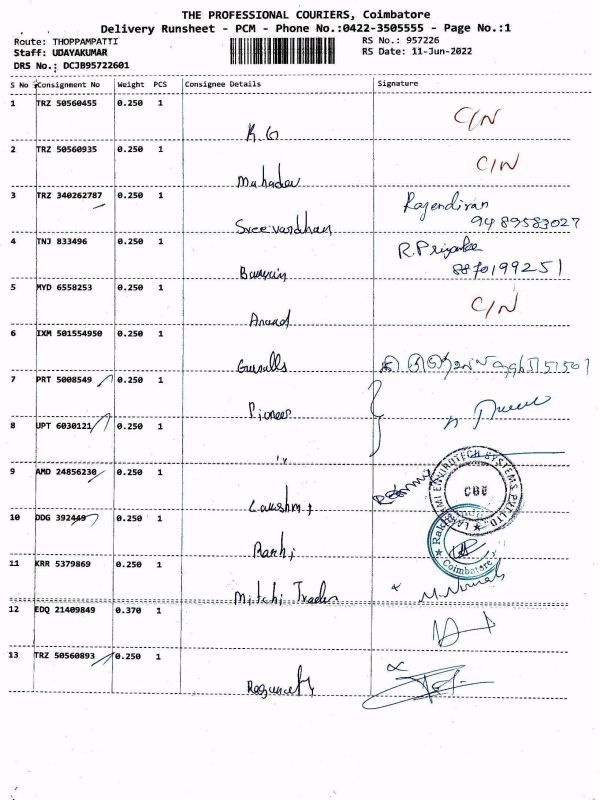 THE PROFESSIONAL COURIERS, Coimbatore
Delivery Runsheet - PCM - Phone No.:0422-3505555 - Page No.:1
Route: THOPPAMPATTI RS No.: 957226
Staff: UDAYAKUMAR RS Date: 11-Jun-2022
DRS No.: DCJB95722601
S No Consignment No Weight PCS Consignee Details Signature
1 TRZ 50560455 0.250 1
K.G C/N
2 TRZ 50560935 0.250 1
Mahadev C/N
3 TRZ 340262787 0.250 1
Sreevardhan Rajendiran
9489583027
4 TNJ 833496 0.250 1
R.Priyanka
8870199251
5 MYD 6558253 0.250 1
Anand C/N
6 IXM 501554950 0.250 1
7 PRT 5008549 0.250 1
Pioneer
8 UPT 6030121 0.250 1
9 AMD 24856230 0.250 1
Lakshmi
LAKSHMI ENVIROTECH SYSTEMS PVT.LTD
CBE
10 DDG 392449 0.250 1
Coimbatore
11 KRR 5379869 0.250 1
Mitchi Trader
12 EDQ 21409849 0.370 1
13 TRZ 50560893 0.250 1